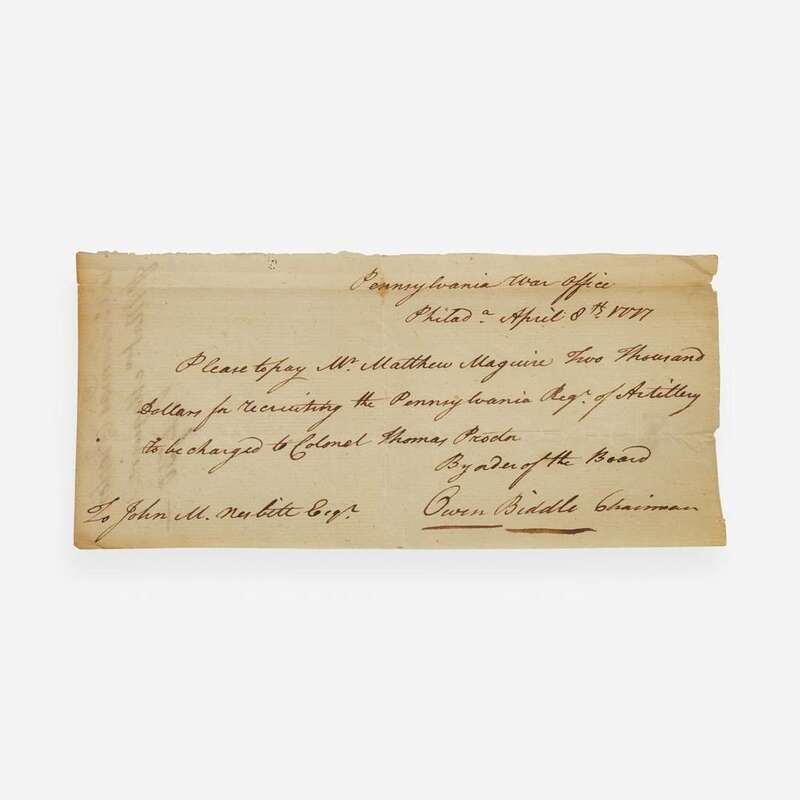 Pennsylvania War Office
Philad.ª April 8th. 1777
Please to pay Mr. Matthew Maguire Two Thousand
Dollars for recruiting the Pennsylvania Regt. of Artillery
To be charged to Colonel Thomas Procter
By order of the Board
To John M. Nesbitt Esqr.
Owen Biddle Chairman